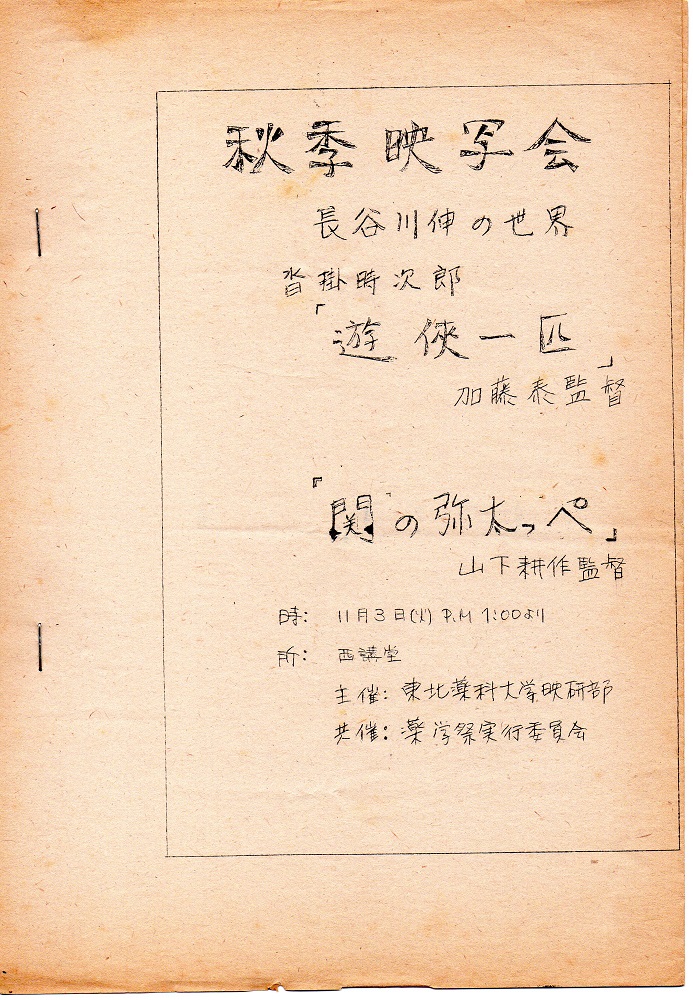 秋季映写会
長谷川伸の世界
沓掛時次郎
「遊俠一匹」
加藤泰監督
『関の弥太っペ』
山下耕作監督
時: 11月3日(火) P.M 1:00より
所: 西講堂
主催: 東北薬科大学映研部
共催: 薬学祭実行委員会